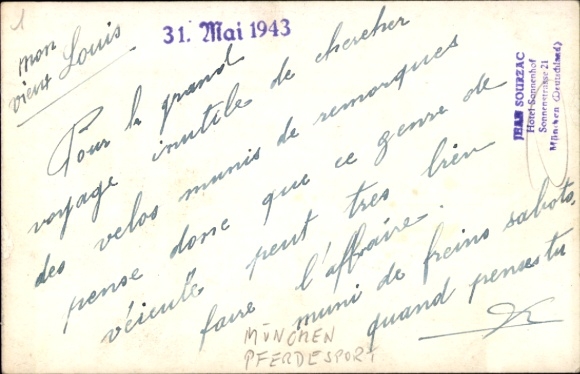 1
mon
vieux Louis
31. Mai 1943
JEAN SOURZAC
Hotel Sonnenhof
Sonnenstrasse 21
München (Deutschland)
Pour le grand
voyage inutile de chercher
des velos munis de remorques
pense donc que ce genre de
véicule peut très bien
faire l'affraire.
muni de freins sabots,
quand penses tu
MÜNCHEN
PFERDESPORT